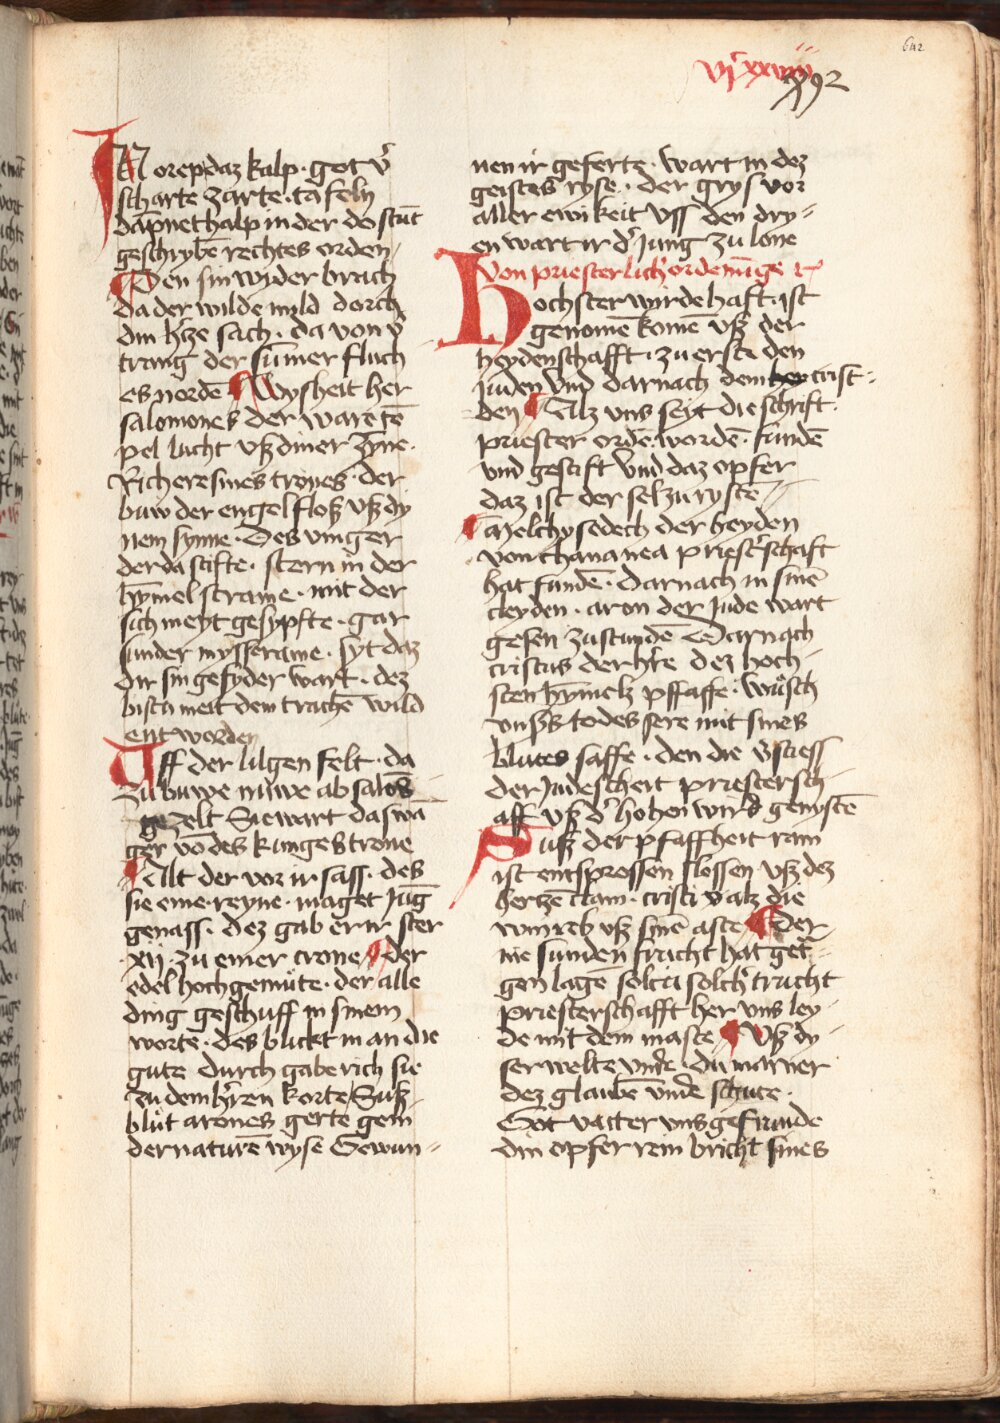 642
vjͨ xxviiij
792
IN orep daz kalp · got v̾
scharte zarte · tafeln
dāpnethalp in der do stūt
geschrybē rechtes orden /
Den sin wyder brach
da der wilde mild dorch
din h̾ze sach · da von v̾
trang der sūmer fluch
es nordē Wysheit her
salomones der ware tē
pel lucht vß diner zyne ·
Richere sines trones · der
buw der engel floß vß dy
nem synne · Des vinger
der da stifte · stern in der
hȳmel strame · mit der
sich meyt gesypfte · gar
sunder mysserame · syt daz
dir sin gefyder wart · dez
bistu meit dem trachē wild
entworden
Vff der lilgen felt · da
zu buwe nuwe absalōs
gezelt Sie wart das wā
ger vō des kunges trone
Alt der vor ir sass · des
sie eine · reyne · maget Jūg
genass · dez gab er ir ster
xij · zu einer crone der
edel hochgemůte · der alle
ding geschuff in sinem
worte · des blickt in an die
gute durch gabe rich sie
zu dem h̾ren korte Suß
blůt arones gerte gein
der naturē wyse Gewun=
nen ir geferte · wart in dez
geistes ryse · der grys vor
aller ewikeit vss den dry=
en wart ir d̾ Jung zu lone
Von priesterlich̾ ordenūge
Hochster wirdehaft · ist
genomē komē vß der
heydenschafft · zu erste den
Juden vnd darnach dem crist=
den Alz vns seyt die schrift ·
priester ordē · wordē · fundē
vnd gestift Vnd daz opfer
daz ist der selzu rystē
Melchysedech der heyden
von thananea priest̾schaft
hat fundē · Darnach in sinē
cleyden · aron der Jude wart
gesen zu stundē Darnach
cristus der h̾re dez hoch=
sten hȳmelz pfaffe · wůsch
vnß̾s todes sere mit sines
blutes saffe · den die v̾stiess
der Judescheit priestersch=
aff vß d̾ hohen wird genystē
Suß der pfaffheit ram
ist entsprossen flossen vß dez
hertzē clam · cristi valz die
winreb vß sinē aste der
nie sunden frucht hat get̾=
gen lagē solcii solch̾ trucht
priesterschafft her vns ley=
de mit dem maste Vß dy=
ser welte vnde · du marner
dez glaubē vinde schute ·
Got vatter vns gefrunde
din opfer rein bricht sines